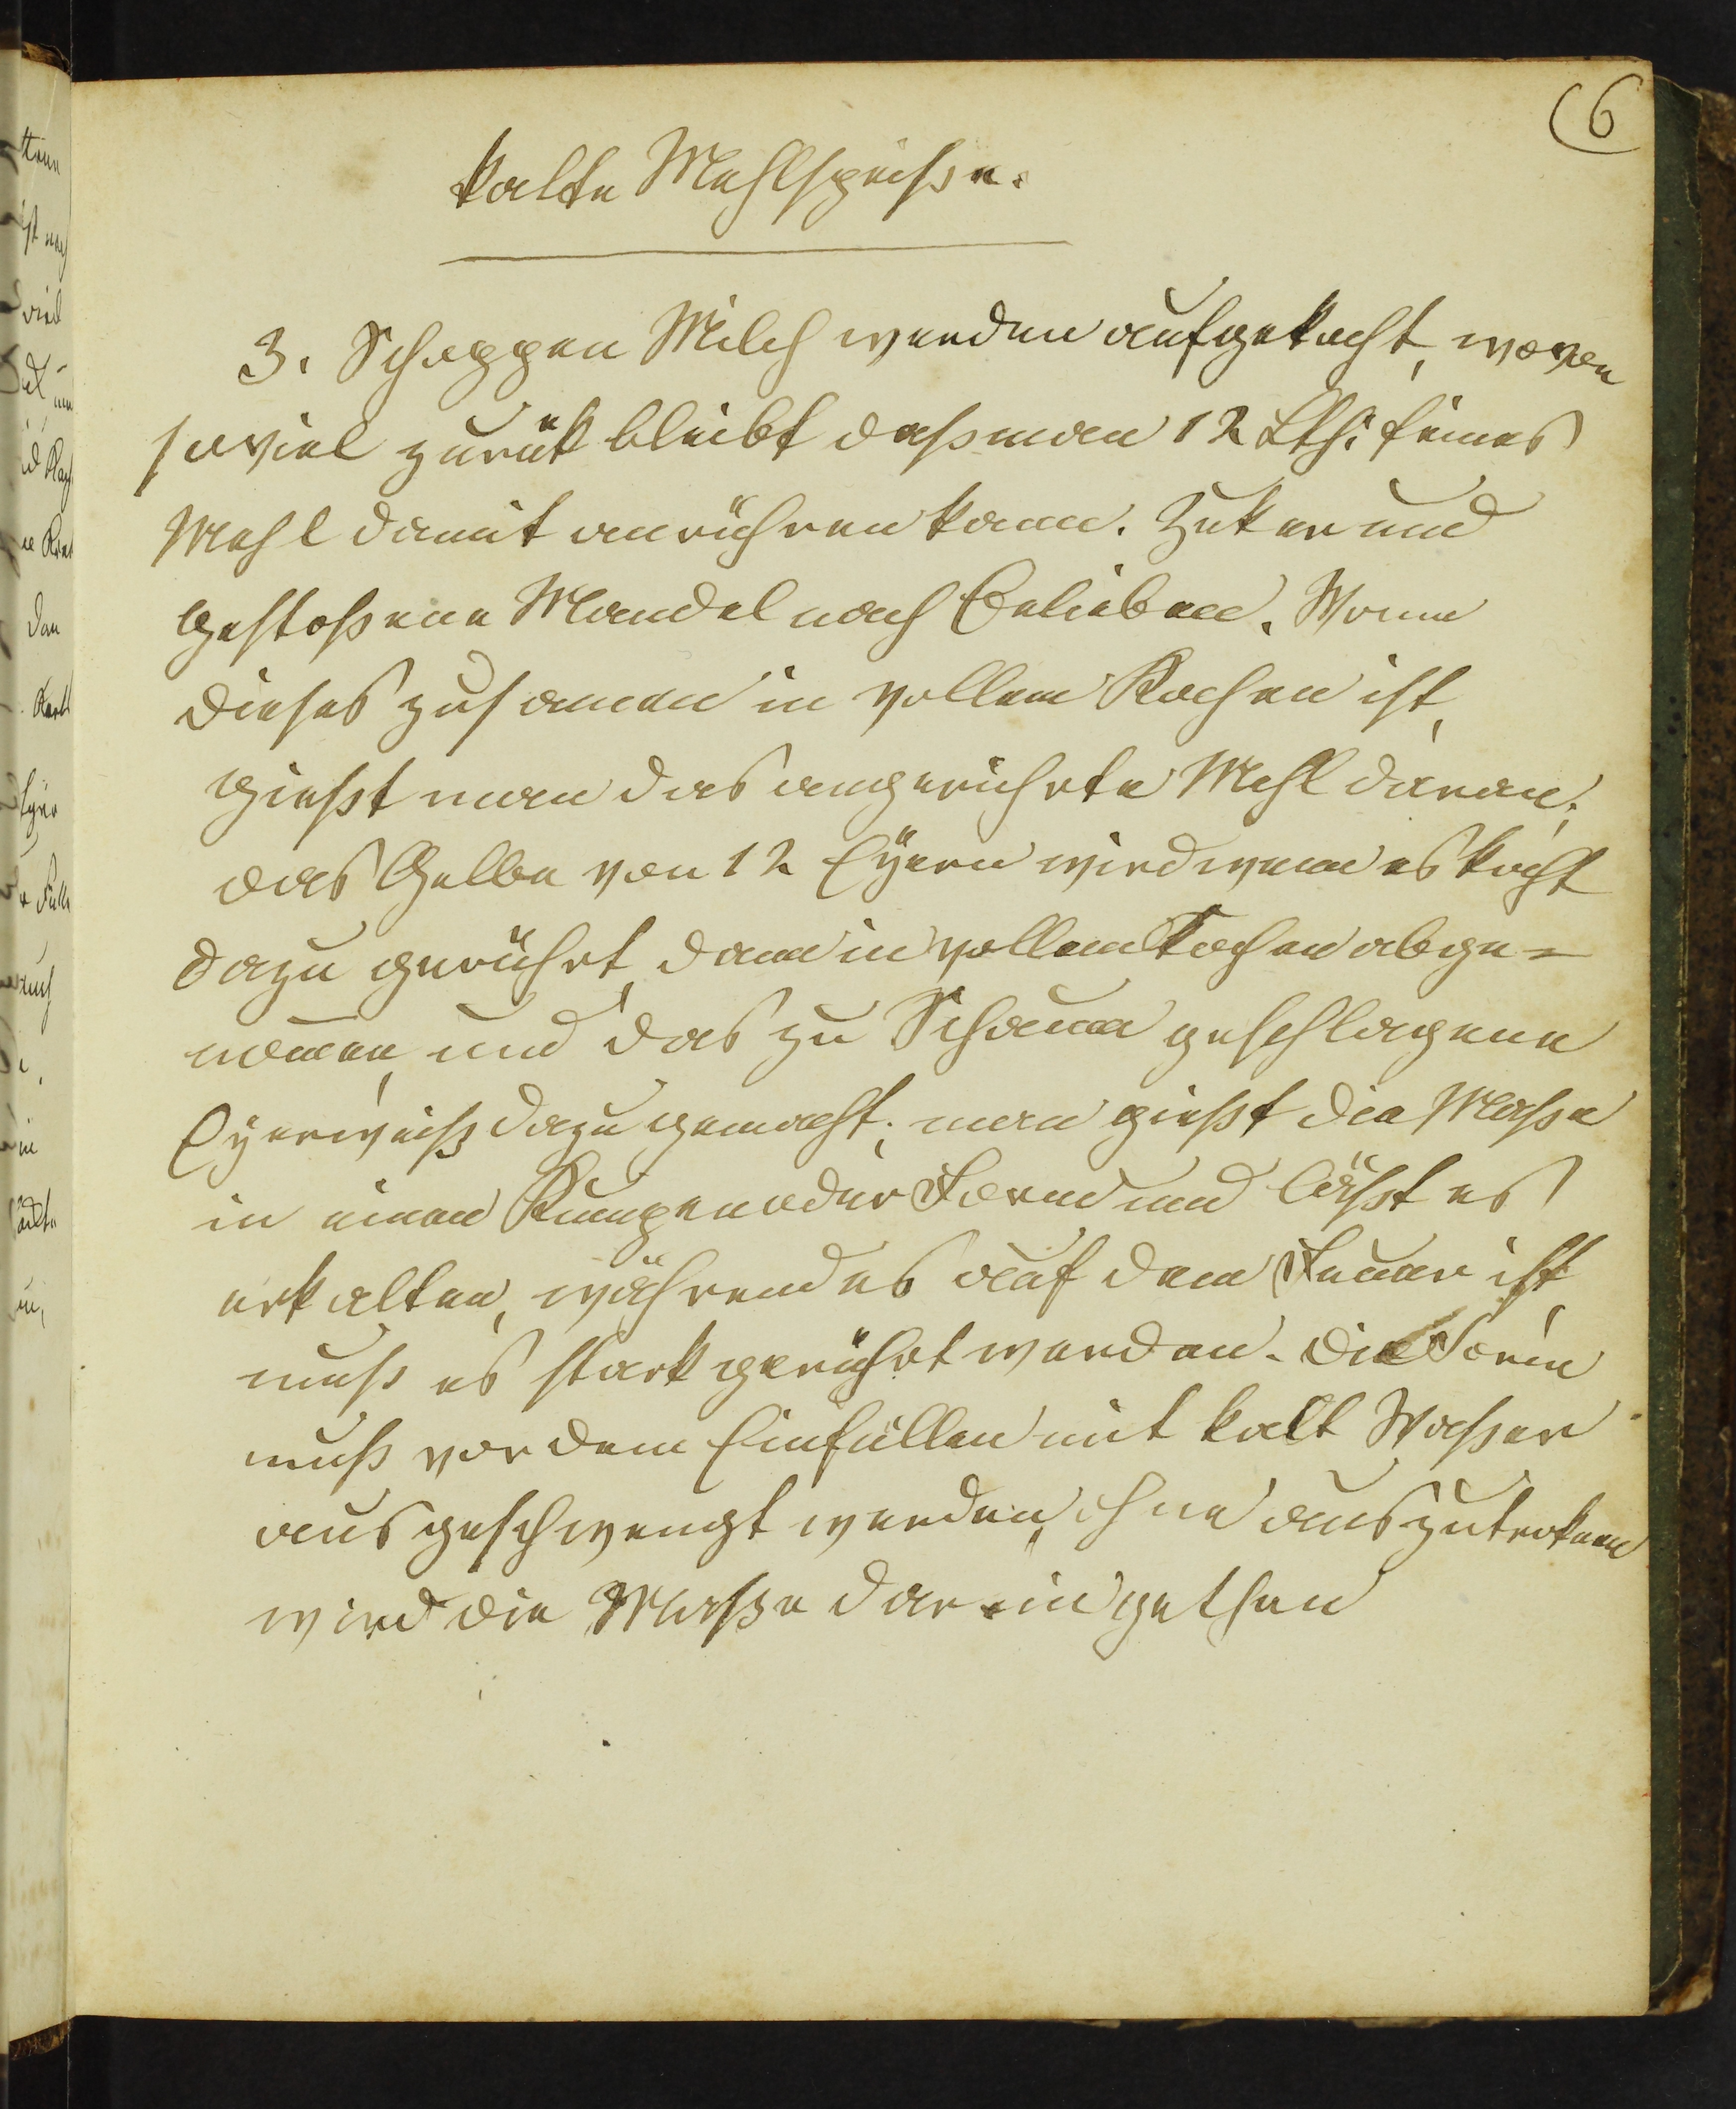 6
kalte Mehlspeiße.
3. Schoppen Milch werden aufgekocht, wovon
soviel zurük bleibt daß man 12 Lth: feines
Mehl damit anrühren kann. Zuker und
gestoßene Mandel nach Belieben. Wenn
dieses zusamen in vollem Kochen ist,
gießt man das angerührte Mehl daran;
das Gelbe von 12 Eyern wird wenn es kocht
dazu gerührt, dann in vollem Kochen abge=
nomen, und das zu Schaum geschlagene
Eyerweiß dazu gemacht; man gießt die Maße
in einen Kumpen oder Form und läßt es
erkalten, während es auf dem Feuer ist,
muß es stark gerührt werden. Die Form
muß vor dem Einfüllen mit kalt Waßer
ausgeschwengt werden, ohne auszutroknen
wird die Maße darein gethan